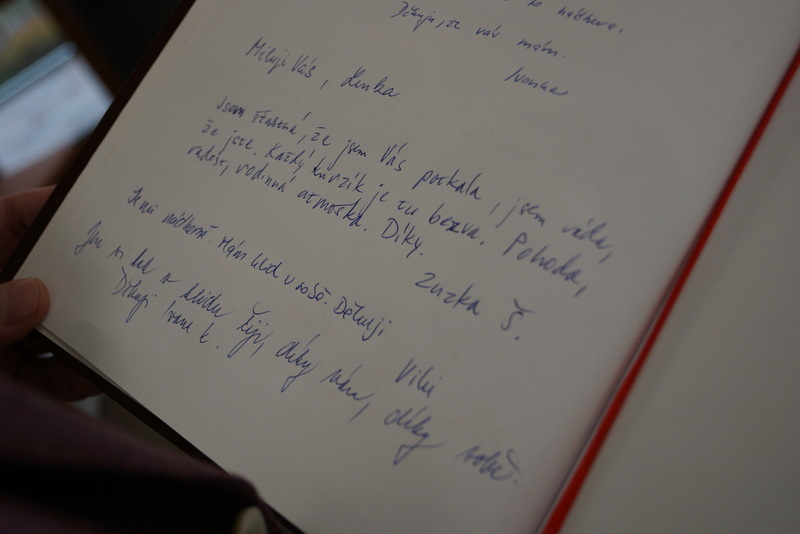 Děkuji, že vás mám.
Ivona
Miluji Vás, Lenka
Jsem šťastná, že jsem Vás potkala, jsem ráda,
že jste. Každý kurzík je tu bezva. Pohoda,
radost, rodinná atmosféra. Díky.
Zuzka Š.
Je mi nádherně. Mám klid v sobě. Děkuji
Viki
Jen si tak v klidu žiji, díky vám, díky sobě.
Děkuji Ivane K.